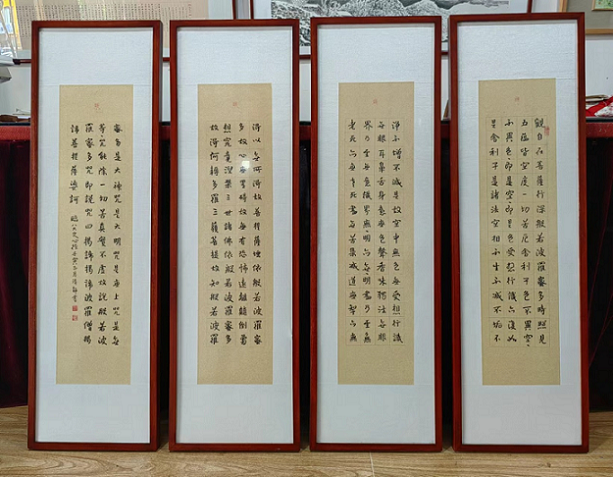 觀自在菩薩行深般若波羅蜜多時照見
五蘊皆空度一切苦厄舍利子色不異空空
不異色色即是空空即是色受想行識亦復如
是舍利子是諸法空相不生不滅不垢不
淨不增不減是故空中無色無受想行識
無眼耳鼻舌身意無色聲香味觸法無眼
界乃至無意識界無無明亦無無明盡乃至無
老死亦無老死盡無苦集滅道無智亦無
得以無所得故菩提薩埵依般若波羅蜜
多故心無罣礙無罣礙故無有恐怖遠離顛倒夢
想究竟涅槃三世諸佛依般若波羅蜜多
故得阿耨多羅三藐三菩提故知般若波羅
蜜多是大神咒是大明咒是無上咒是無
等等咒能除一切苦真實不虛故說般若波
羅蜜多咒即說咒曰揭諦揭諦波羅揭諦波羅僧揭
諦菩提薩婆訶